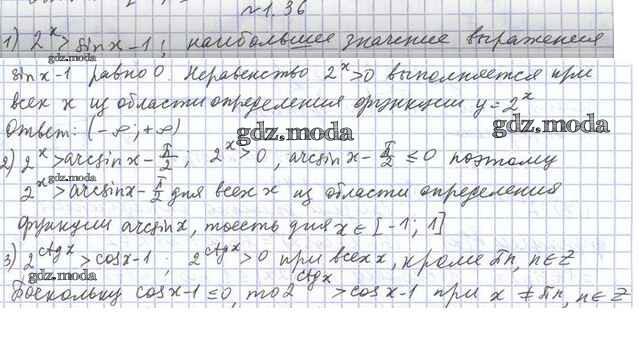 №1.36
1) 2^x > sin x - 1 ; наибольшее значение выражения
sin x - 1 равно 0. Неравенство 2^x > 0 выполняется при
всех x из области определения функции y = 2^x
Ответ: (-∞; +∞)
gdz.moda
gdz.moda
gdz.moda
2) 2^x > arcsin x - π/2 ; 2^x > 0, arcsin x - π/2 ≤ 0 поэтому
gdz.moda
2^x > arcsin x - π/2 для всех x из области определения
функции arcsin x, тоесть для x ∈ [-1; 1]
3) 2^ctg x > cos x - 1 ; 2^ctg x > 0 при всех x, кроме πn, n ∈ Z
gdz.moda
Поскольку cos x - 1 ≤ 0, то 2^ctg x > cos x - 1 при x ≠ πn, n ∈ Z